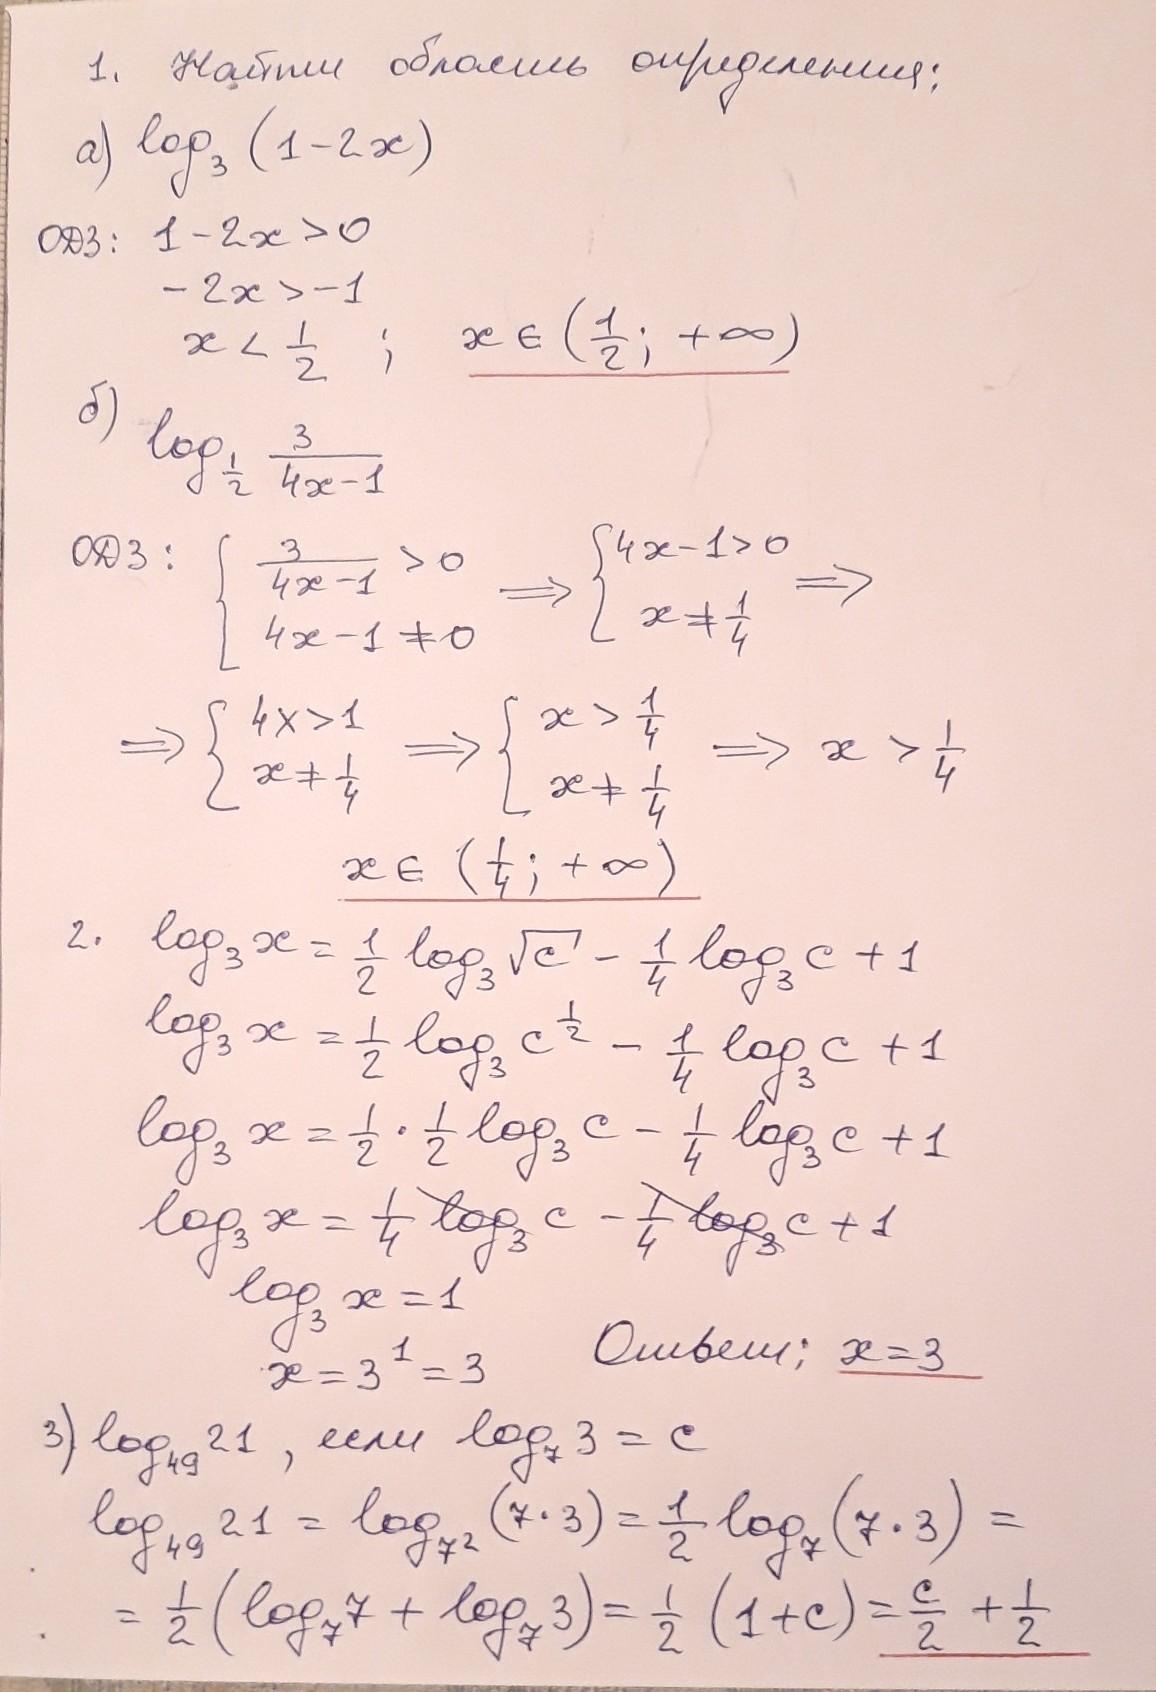 1. Найти область определения:
а) log₃(1-2x)
ОДЗ: 1-2x>0
-2x>-1
x < 1/2 ; x ∈ (1/2; +∞)
б) log_{1/2} 3/(4x-1)
ОДЗ: { 3/(4x-1) > 0, 4x-1≠0 ⟹ { 4x-1>0, x≠1/4 ⟹
⟹ { 4x>1, x≠1/4 ⟹ { x > 1/4, x≠1/4 ⟹ x > 1/4
x ∈ (1/4; +∞)
2. log₃x = 1/2 log₃√c - 1/4 log₃c + 1
log₃x = 1/2 log₃c^{1/2} - 1/4 log₃c + 1
log₃x = 1/2 · 1/2 log₃c - 1/4 log₃c + 1
log₃x = 1/4 log₃c - 1/4 log₃c + 1
log₃x = 1
x = 3¹ = 3 Ответ: x = 3
3) log₄₉21, если log₇3 = c
log₄₉21 = log_{7²}(7·3) = 1/2 log₇(7·3) =
= 1/2 (log₇7 + log₇3) = 1/2 (1+c) = c/2 + 1/2